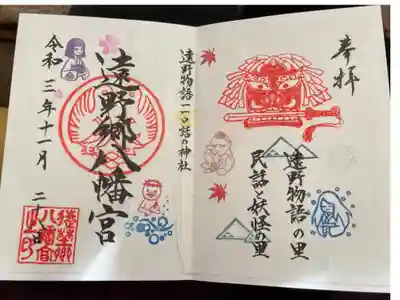 奉拝
遠野物語の里
民話と妖怪の里
遠野物語一一〇話の神社
遠野郷八幡宮
令和三年十一月二十八日